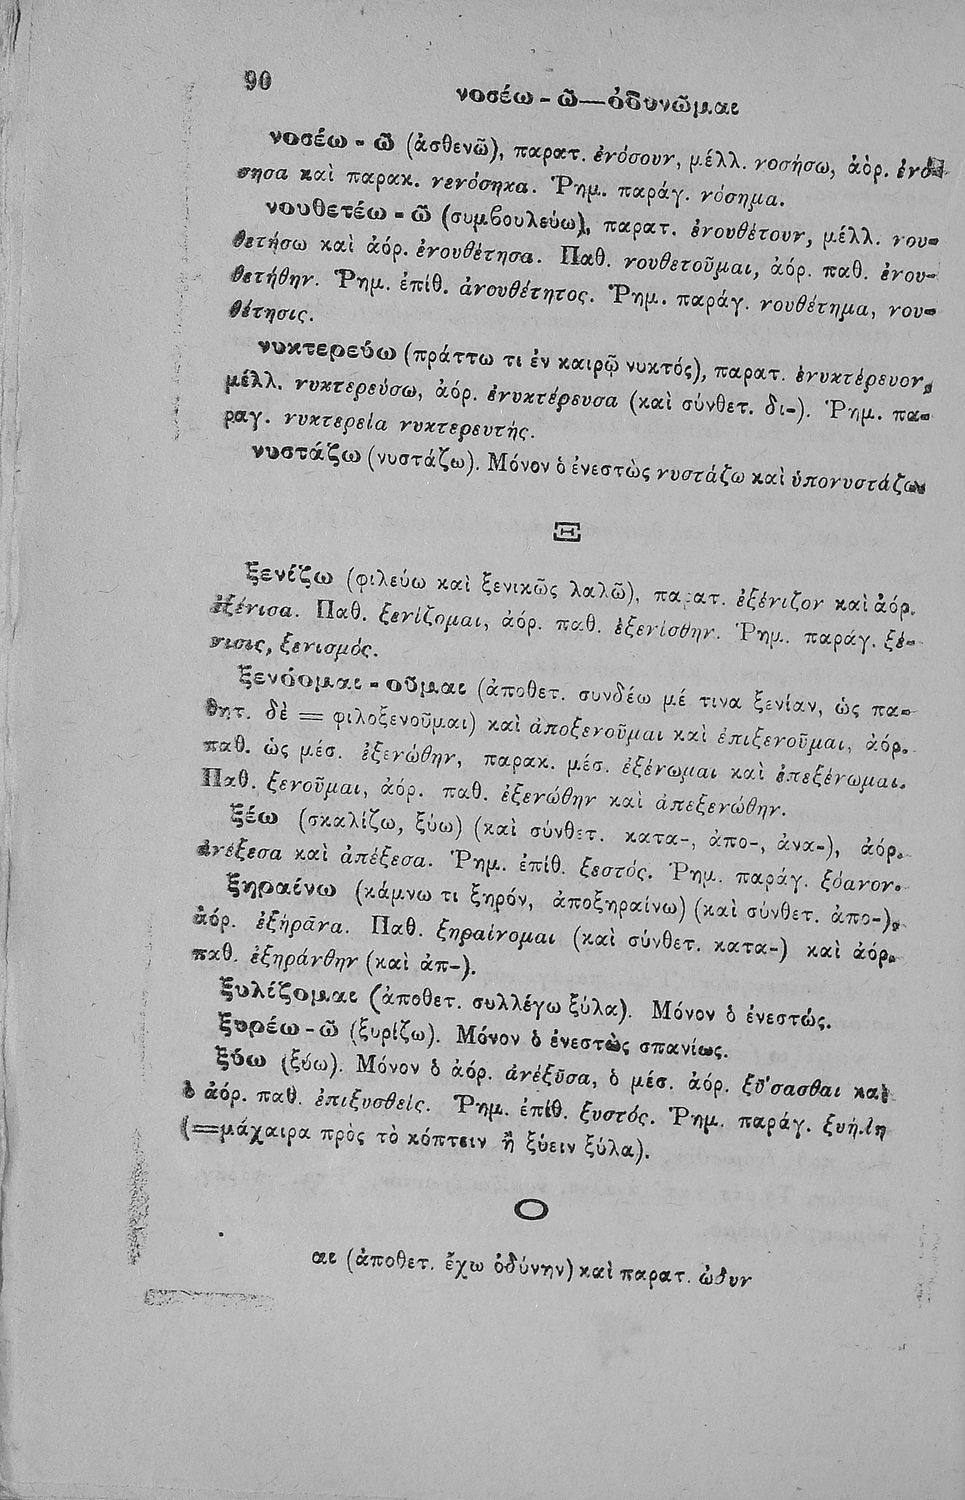 90
νοσέω - ῶ—ὀδυνῶμαι
νοσέω - ῶ (ἀσθενῶ), παρατ. ἐνόσουν, μέλλ. νοσήσω, ἀόρ. ἐνό-
σησα καὶ παρακ. νενόσηκα. Ῥημ. παράγ. νόσημα.
νουθετέω - ῶ (συμβουλεύω), παρατ. ἐνουθέτουν, μέλλ. νου-
θετήσω καὶ ἀόρ. ἐνουθέτησα. Παθ. νουθετοῦμαι, ἀόρ. παθ. ἐνου-
θετήθην. Ῥημ. ἐπίθ. ἀνουθέτητος. Ῥημ. παράγ. νουθέτημα, νου-
θέτησις.
νυκτερεύω (πράττω τι ἐν καιρῷ νυκτός), παρατ. ἐνυκτέρευον,
μέλλ. νυκτερεύσω, ἀόρ. ἐνυκτέρευσα (καὶ σύνθετ. δι-). Ῥημ. πα-
ραγ. νυκτερεία νυκτερευτής.
νυστάζω (νυστάζω). Μόνον ὁ ἐνεστὼς νυστάζω καὶ ὑπονυστάζω.
Ξ
ξενίζω (φιλεύω καὶ ξενικῶς λαλῶ), παρατ. ἐξένιζον καὶ ἀόρ.
ἐξένισα. Παθ. ξενίζομαι, ἀόρ. παθ. ἐξενίσθην. Ῥημ. παράγ. ξέ-
νισις, ξενισμός.
ξενόομαι - οῦμαι (ἀποθετ. συνδέω μέ τινα ξενίαν, ὡς πα-
θητ. δὲ = φιλοξενοῦμαι) καὶ ἀποξενοῦμαι καὶ ἐπιξενοῦμαι, ἀόρ.
παθ. ὡς μέσ. ἐξενώθην, παρακ. μέσ. ἐξένωμαι καὶ ἐπεξένωμαι.
Παθ. ξενοῦμαι, ἀόρ. παθ. ἐξενώθην καὶ ἀπεξενώθην.
ξέω (σκαλίζω, ξύω) (καὶ σύνθετ. κατα-, ἀπο-, ἀνα-), ἀόρ.
ἀνέξεσα καὶ ἀπέξεσα. Ῥημ. ἐπίθ. ξεστός. Ῥημ. παράγ. ξόανον.
ξηραίνω (κάμνω τι ξηρόν, ἀποξηραίνω) (καὶ σύνθετ. ἀπο-),
ἀόρ. ἐξήρᾱνα. Παθ. ξηραίνομαι (καὶ σύνθετ. κατα-) καὶ ἀόρ.
παθ. ἐξηράνθην (καὶ ἀπ-).
ξυλίζομαι (ἀποθετ. συλλέγω ξύλα). Μόνον ὁ ἐνεστώς.
ξυρέω - ῶ (ξυρίζω). Μόνον ὁ ἐνεστὼς σπανίως.
ξύω (ξύω). Μόνον ὁ ἀόρ. ἀνέξῡσα, ὁ μέσ. ἀόρ. ξῡ́σασθαι καὶ
ὁ ἀόρ. παθ. ἐπιξυσθείς. Ῥημ. ἐπίθ. ξυστός. Ῥημ. παράγ. ξυήλη
(=μάχαιρα πρὸς τὸ κόπτειν ἢ ξύειν ξύλα).
Ο
αι (ἀποθετ. ἔχω ὀδύνην) καὶ παρατ. ὠδυν